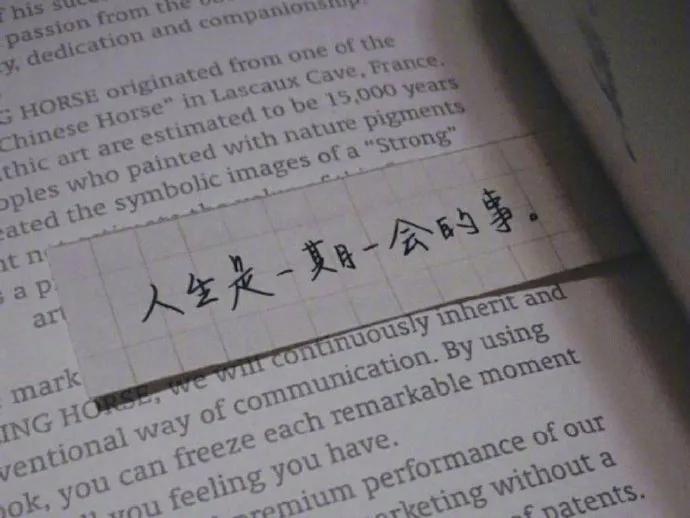 of his suc
passion from the
y, dedication and companionship.
G HORSE originated from one of the
Chinese Horse" in Lascaux Cave, France.
thic art are estimated to be 15,000 years
oples who painted with nature pigments
eated the symbolic images of a "Strong"
nt
s a p
art
人生是一期一会的事。
mark
ING HORSE, we will continuously inherit and
ventional way of communication. By using
ook, you can freeze each remarkable moment
you feeling you have.
premium performance of our
rketing without a
of patents.